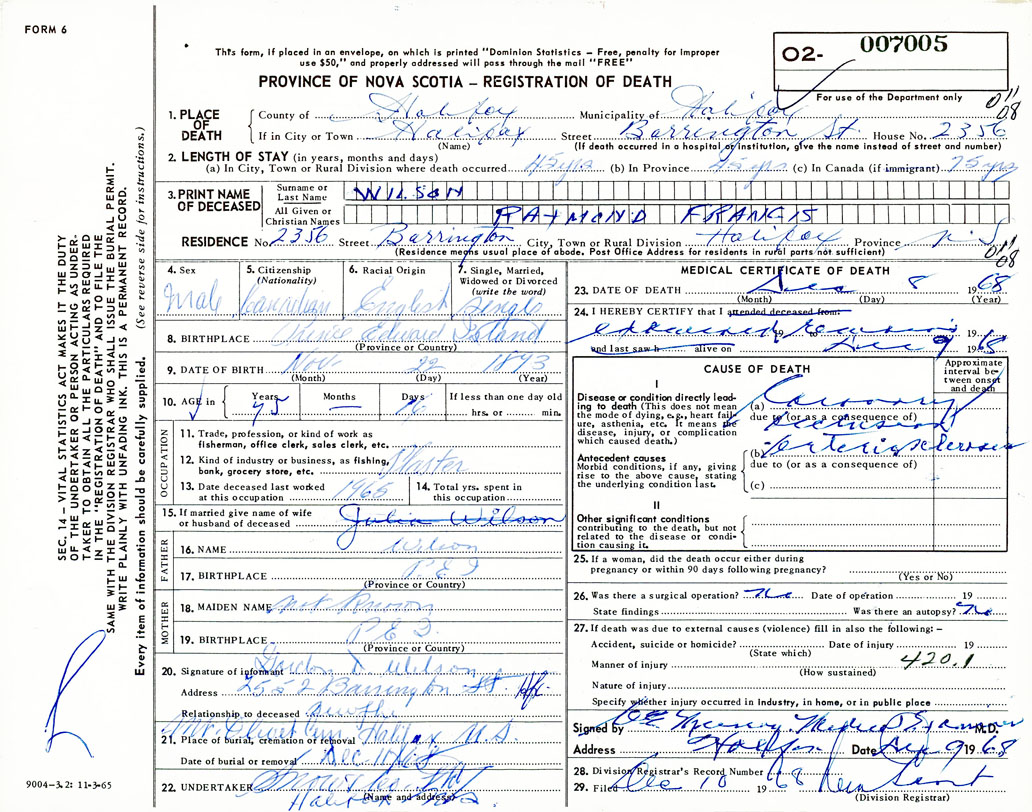 FORM 6
This form, if placed in an envelope, on which is printed "Dominion Statistics – Free, penalty for improper
use $50," and properly addressed will pass through the mail "FREE"
PROVINCE OF NOVA SCOTIA – REGISTRATION OF DEATH
02- 007005
For use of the Department only
1. PLACE OF DEATH
County of Halifax Municipality of Halifax
If in City or Town Halifax Street Barrington St House No. 2356
(Name) (If death occurred in a hospital or institution, give the name instead of street and number)
2. LENGTH OF STAY (in years, months and days)
(a) In City, Town or Rural Division where death occurred 45 yrs (b) In Province 45 yrs (c) In Canada (if immigrant) 75 yrs
3. PRINT NAME OF DECEASED
Surname or Last Name WILSON
All Given or Christian Names RAYMOND FRANCIS
RESIDENCE No. 2356 Street Barrington City, Town or Rural Division Halifax Province N.S
(Residence means usual place of abode. Post Office Address for residents in rural parts not sufficient)
011
08
4. Sex Male
5. Citizenship (Nationality) Canadian
6. Racial Origin English
7. Single, Married, Widowed or Divorced (write the word) Single
8. BIRTHPLACE Prince Edward Island
(Province or Country)
9. DATE OF BIRTH Nov. 22 1893
(Month) (Day) (Year)
10. AGE in Years 75 Months — Days 16 If less than one day old
hrs. or min.
OCCUPATION
11. Trade, profession, or kind of work as fisherman, office clerk, sales clerk, etc.
12. Kind of industry or business, as fishing, bank, grocery store, etc.
13. Date deceased last worked at this occupation 1965
14. Total yrs. spent in this occupation
15. If married give name of wife or husband of deceased Julia Wilson
FATHER
16. NAME Wilson
17. BIRTHPLACE P.E.I
(Province or Country)
MOTHER
18. MAIDEN NAME not Known
19. BIRTHPLACE P E I
(Province or Country)
20. Signature of informant Wilson
Address Barrington St Hfx
Relationship to deceased
21. Place of burial, cremation or removal Mt. Olivet Cem. Halifax N.S.
Date of burial or removal Dec
22. UNDERTAKER
(Name and address)
MEDICAL CERTIFICATE OF DEATH
23. DATE OF DEATH Dec 8 1968
(Month) (Day) (Year)
24. I HEREBY CERTIFY that I attended deceased from:
examined remains 19
and last saw h alive on Dec 9 1968
CAUSE OF DEATH
Approximate interval between onset and death
I
Disease or condition directly leading to death (This does not mean the mode of dying, e.g., heart failure, asthenia, etc. It means the disease, injury, or complication which caused death.)
(a) Coronary
due to (or as a consequence of)
occlusion
Antecedent causes
Morbid conditions, if any, giving rise to the above cause, stating the underlying condition last.
(b) arteriosclerosis
due to (or as a consequence of)
(c)
II
Other significant conditions contributing to the death, but not related to the disease or condition causing it.
25. If a woman, did the death occur either during
pregnancy or within 90 days following pregnancy?
(Yes or No)
26. Was there a surgical operation? No Date of operation 19
State findings Was there an autopsy? No
27. If death was due to external causes (violence) fill in also the following: –
Accident, suicide or homicide? Date of injury 19
(State which)
Manner of injury 420.1
(How sustained)
Nature of injury
Specify whether injury occurred in industry, in home, or in public place
Signed by Medical Examiner M.D.
Address Halifax Date 9 1968
28. Division Registrar's Record Number
29. Filed Dec 10 1968
(Division Registrar)
SEC. 14 – VITAL STATISTICS ACT MAKES IT THE DUTY
OF THE UNDERTAKER OR PERSON ACTING AS UNDER-
TAKER TO OBTAIN ALL THE PARTICULARS REQUIRED
IN THE "REGISTRATION OF DEATH" AND TO FILE THE
SAME WITH THE DIVISION REGISTRAR WHO SHALL ISSUE THE BURIAL PERMIT.
WRITE PLAINLY WITH UNFADING INK. THIS IS A PERMANENT RECORD.
Every item of information should be carefully supplied. (See reverse side for instructions.)
9004-3.2: 11-3-65